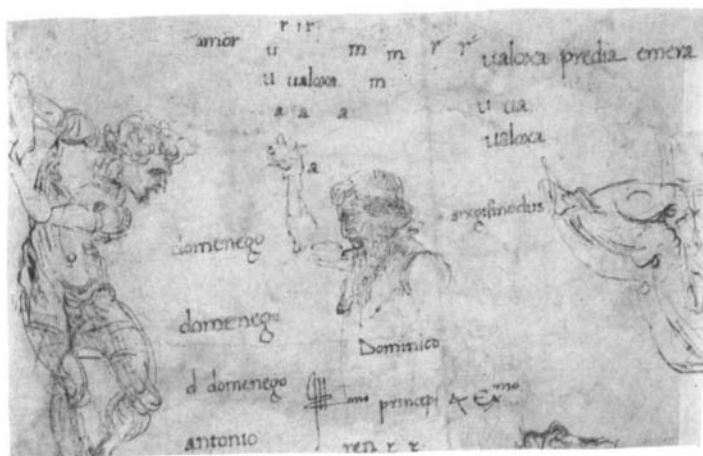 r r r
amor u m m r r ualoxa predia emera
u ualoxa m
a a a u ua
ualoxa
a
domenego
domenego
Dominico
d domenego mo principi & Ex mo
antonio ren r r